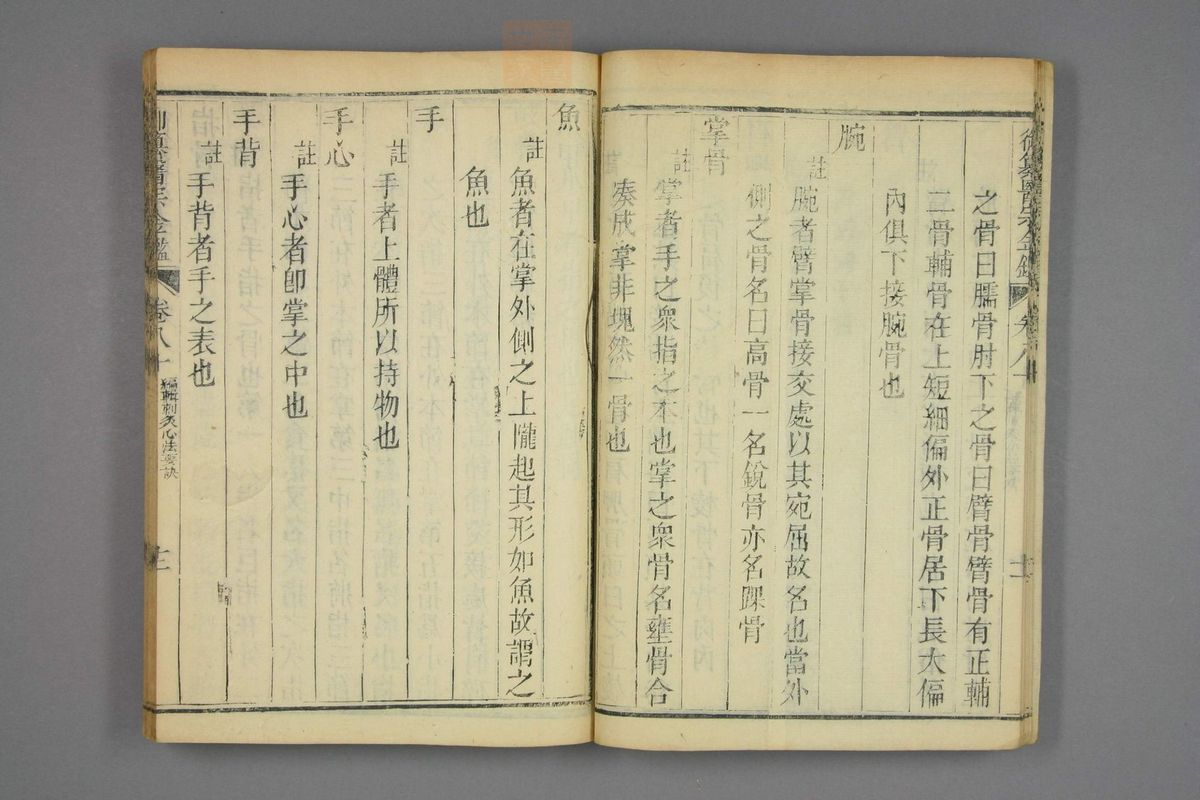 之骨曰臑骨肘下之骨曰臂骨臂骨有正輔
二骨輔骨在上短細偏外正骨居下長大偏
內俱下接腕骨也
腕
註
腕者臂掌骨接交處以其宛屈故名也當外
側之骨名曰高骨一名銳骨亦名踝骨
掌骨
註
掌者手之衆指之本也掌之衆骨名壅骨合
湊成掌非塊然一骨也
魚
註
魚者在掌外側之上隴起其形如魚故謂之
魚也
手
註
手者上體所以持物也
手心
註
手心者卽掌之中也
手背
註
手背者手之表也
醫宗金鑑
卷八十
編輯刺灸心法要訣